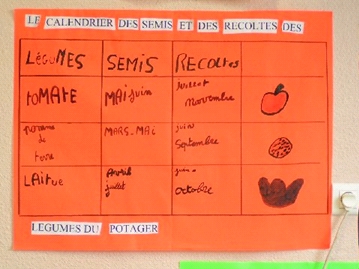 LE CALENDRIER DES SEMIS ET DES RECOLTES DES
LéGuMES SEMIS RECOLtes
toMAtE MAI juin juillet
novembre
pomme de terre MARS-MAi juin
Septembre
LAitue Avril
juillet juin
octobre
LEGUMES DU POTAGER